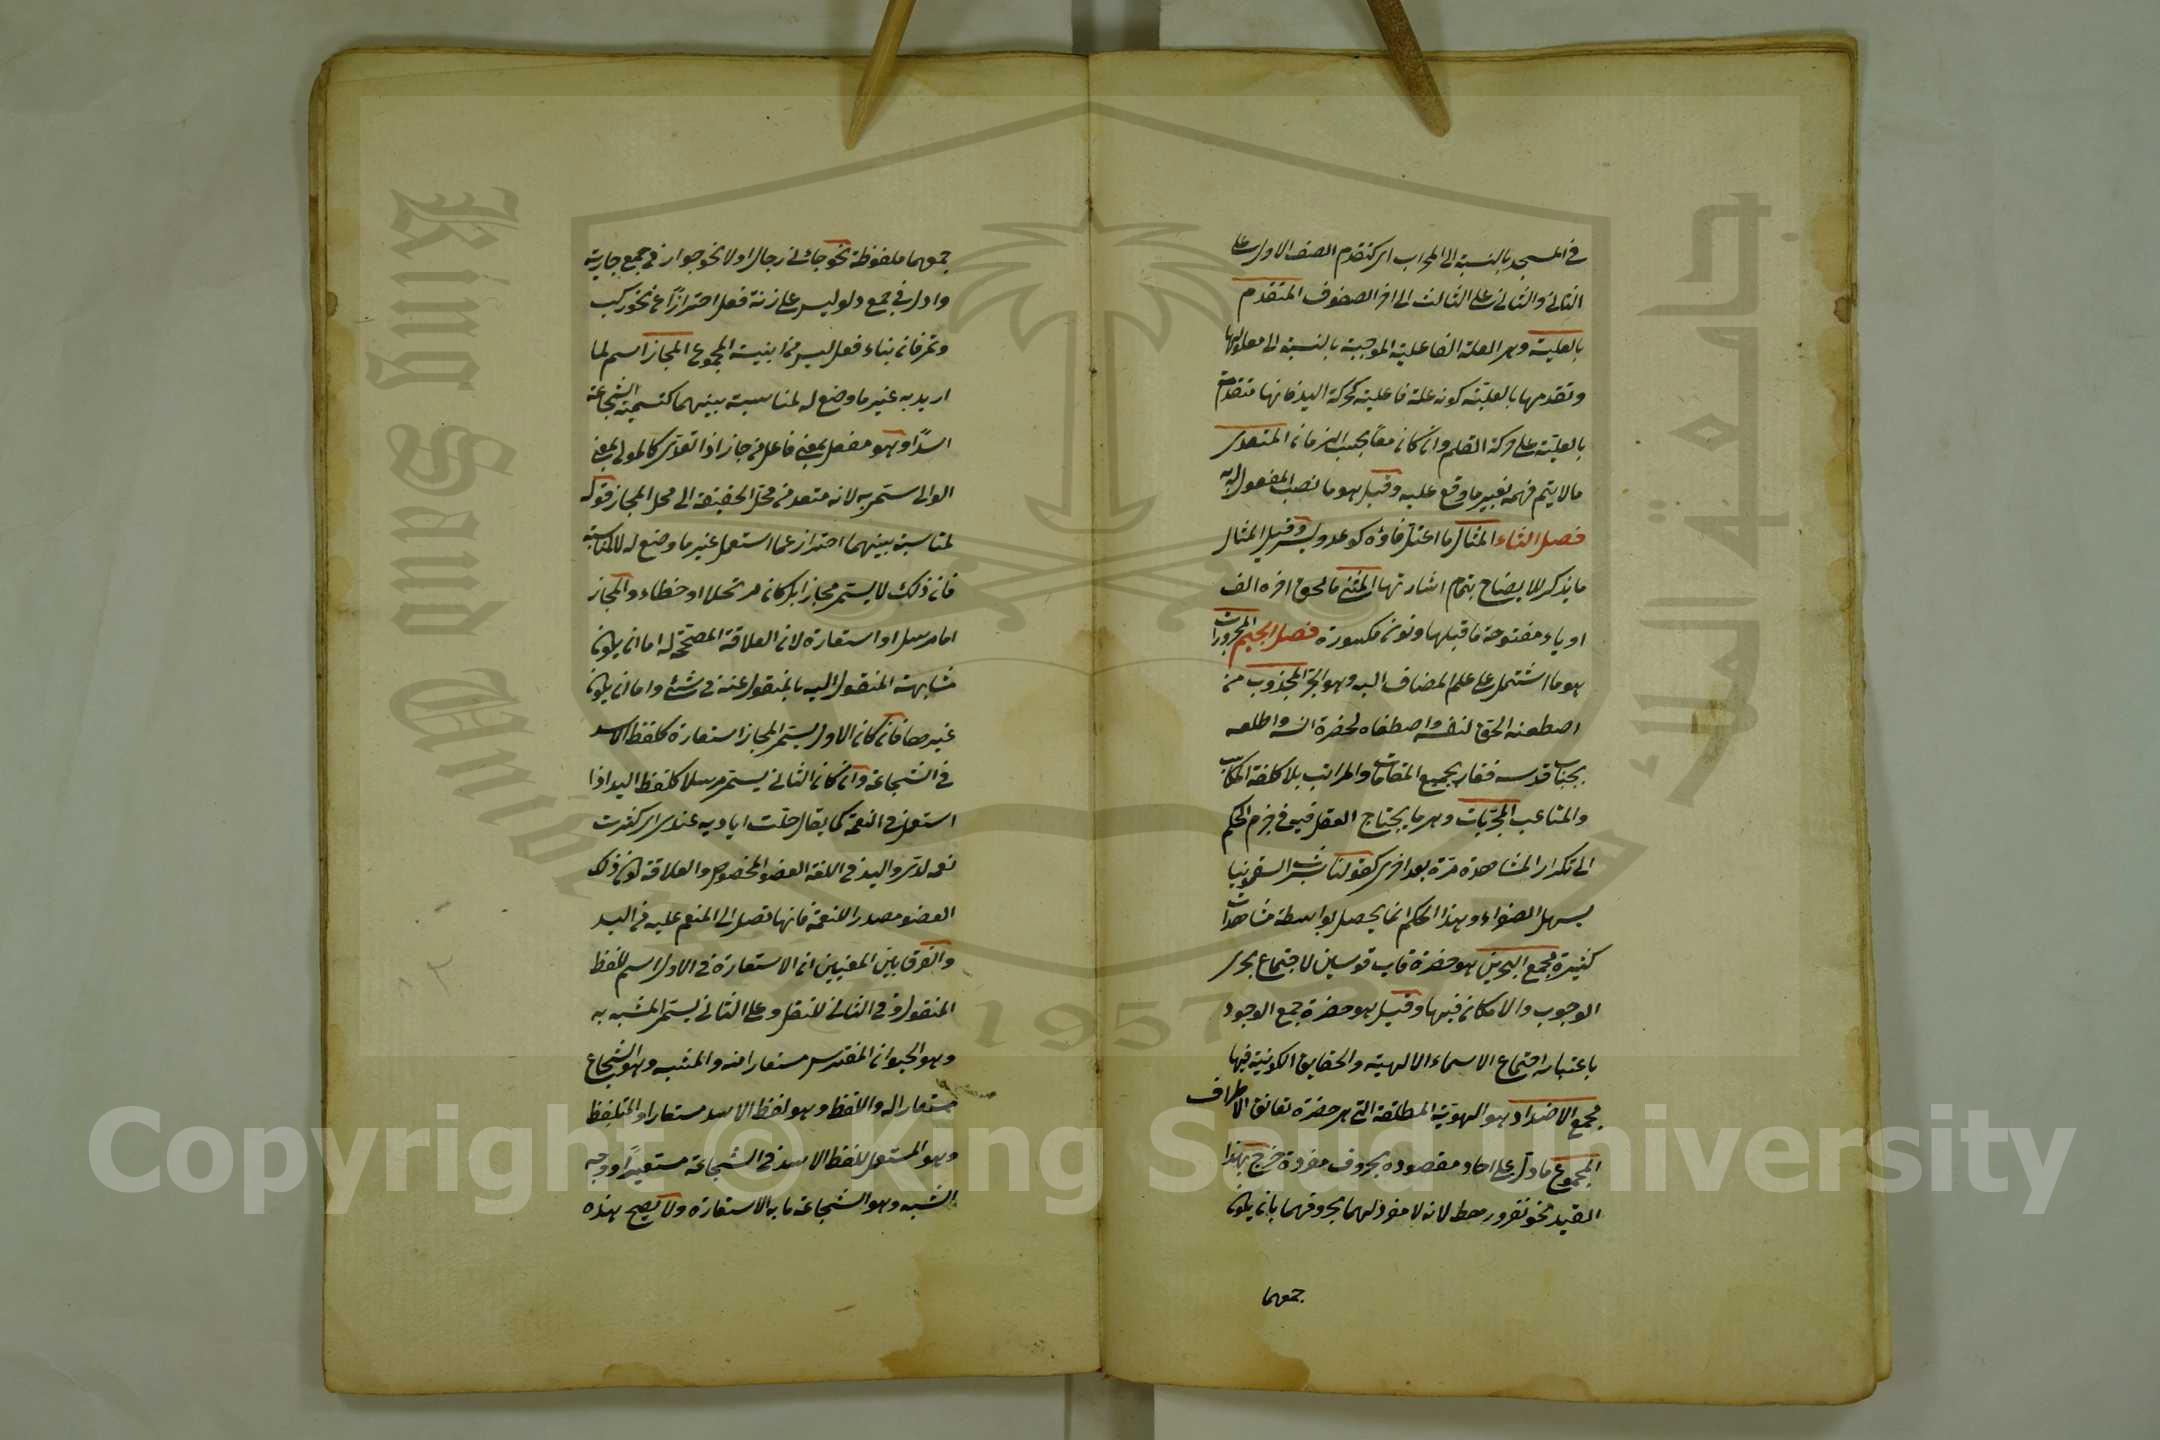 في المسجد بالنسبة الى المحراب اى كتقدم الصف الاول على
الثاني والثاني على الثالث الى اخر الصفوف المتقدم
بالعلية وهى العلة الفاعلية الموجبة بالنسبة الى معلولها
وتقدمها بالعلية كونه علة فاعلية كحركة اليد فانها متقدمة
بالعلية على حركة القلم وان كانا معا بحسب الزمان المتعدى
مالا يتم فهمه بغير ما وقع عليه وقيل هو ما نصب المفعول به
فصل الثاء المثال ما اعتل فاؤه كوعد ويسر وقيل المثال
ما يذكر للايضاح بتمام اشارتها المثنى ما لحق اخره الف
او ياء مفتوحة ما قبلها ونون مكسورة فصل الجيم المجرورات
هو ما اشتمل على علم المضاف اليه وهو الجر المجذوب من
اصطنعه الحق لنفسه واصطفاه لحضرة انسه واطلعه
بجناب قدسه ففاز بجميع المقامات والمراتب بلا كلفة المكاسب
والمتاعب المجربات وهى ما يحتاج العقل فيه في جزم الحكم
الى تكرار المشاهدة مرة بعد اخرى كقولنا شرب السقمونيا
يسهل الصفراء وهذا الحكم انما يحصل بواسطة مشاهدات
كثيرة مجمع البحرين هو حضرة قاب قوسين لاجتماع بحرى
الوجوب والامكان فيها وقيل هو حضرة جمع الوجود
باعتبار اجتماع الاسماء الالهية والحقايق الكونية فيها
مجمع الاضداد هو الهوية المطلقة التى هى حضرة تعانق الاطراف
المجموع ما دل على احاد مقصودة بحروف مفردة خرج بهذا
القيد نحو نفر ورهط لانه لا مفرد لهما بحروفهما بان يكون
جمعهما
جمعهما ملفوظة نحو جائنى رجال اولا نحو جوار في جمع جارية
وادل في جمع دلو ليس على زنة فعل احترازا عن نحو ركب
وتمر فان بناء فعل ليس من ابنية المجموع المجاز اسم لما
اريد به غير ما وضع له لمناسبة بينهما كتسمية الشجاع
اسدا وهو مفعل بمعنى فاعل من جاز اذا تعدى كالمولى بمعنى
الوالى سمى به لانه متعد من محل الحقيقة الى محل المجاز قوله
لمناسبة بينهما احتراز عما استعمل غير ما وضع له لا لمناسبة
فان ذلك لا يسمى مجازا بل كان مرتجلا او خطاء والمجاز
اما مرسل او استعارة لان العلاقة المصححة له اما ان يكون
مشابهة المنقول اليه بالمنقول عنه في شئ واما ان يكون
غيرها فان كان الاول يسمى المجاز استعارة كلفظ الاسد
في الشجاعة وان كان الثاني يسمى مرسلا كلفظ اليد اذا
استعمل في النعمة كما يقال جلت اياديه عندى اى كثرت
نعمه لدى واليد في اللغة العضو المخصوص والعلاقة كون ذلك
العضو مصدرا للنعمة فانها تصل الى المنعم عليه من اليد
والفرق بين المعنيين ان الاستعارة في الاول اسم للفظ
المنقول وفي الثاني للنقل وعلى الثاني يسمى المشبه به
وهو الحيوان المفترس مستعارا منه والمشبه وهو الشجاع
مستعارا له واللفظ وهو لفظ الاسد مستعارا والمتلفظ
وهو المستعمل للفظ الاسد في الشجاعة مستعيرا ووجه
الشبه وهو الشجاعة ما به الاستعارة ولا يصح هذه
King Saud University
جامعة الملك سعود
1957
Copyright © King Saud University